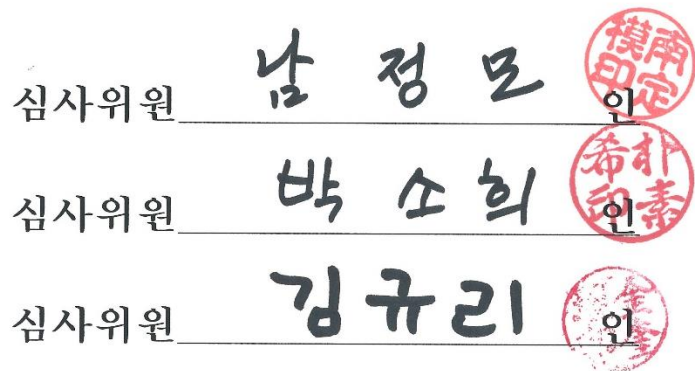 심사위원 남정모 인
南定模印
심사위원 박소희 인
朴素希印
심사위원 김규리 인